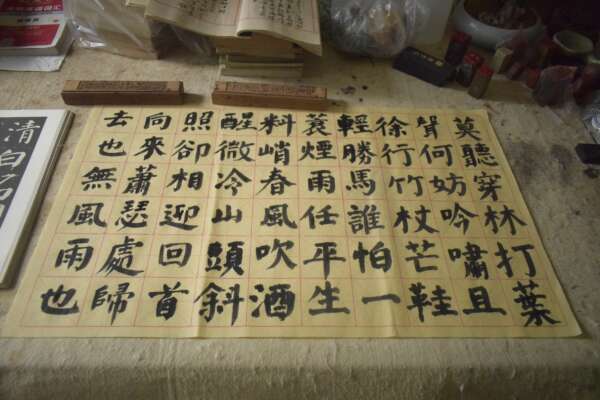 莫聽穿林打葉
聲何妨吟嘯且
徐行竹杖芒鞋
輕勝馬誰怕一
蓑煙雨任平生
料峭春風吹酒
醒微冷山頭斜
照卻相迎回首
向來蕭瑟處歸
去也無風雨也
清白